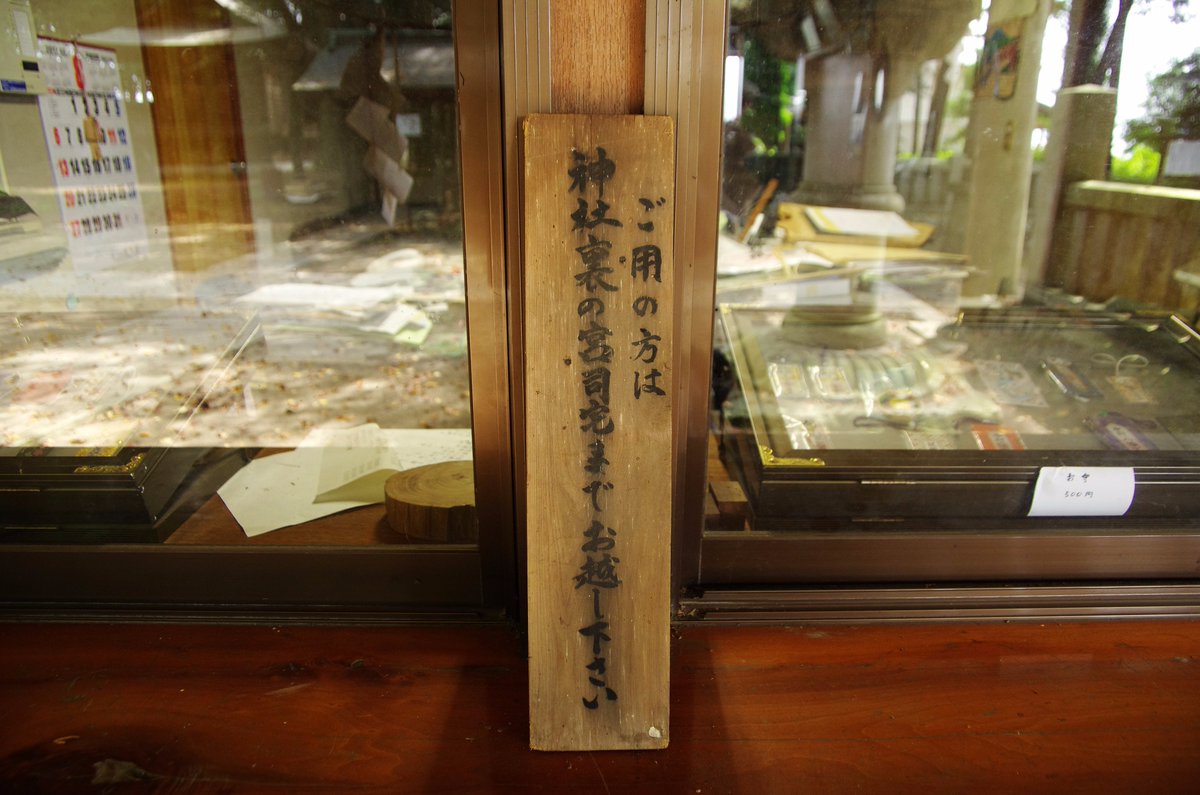 ご用の方は
神社裏の宮司宅までお越し下さい
お守
500円